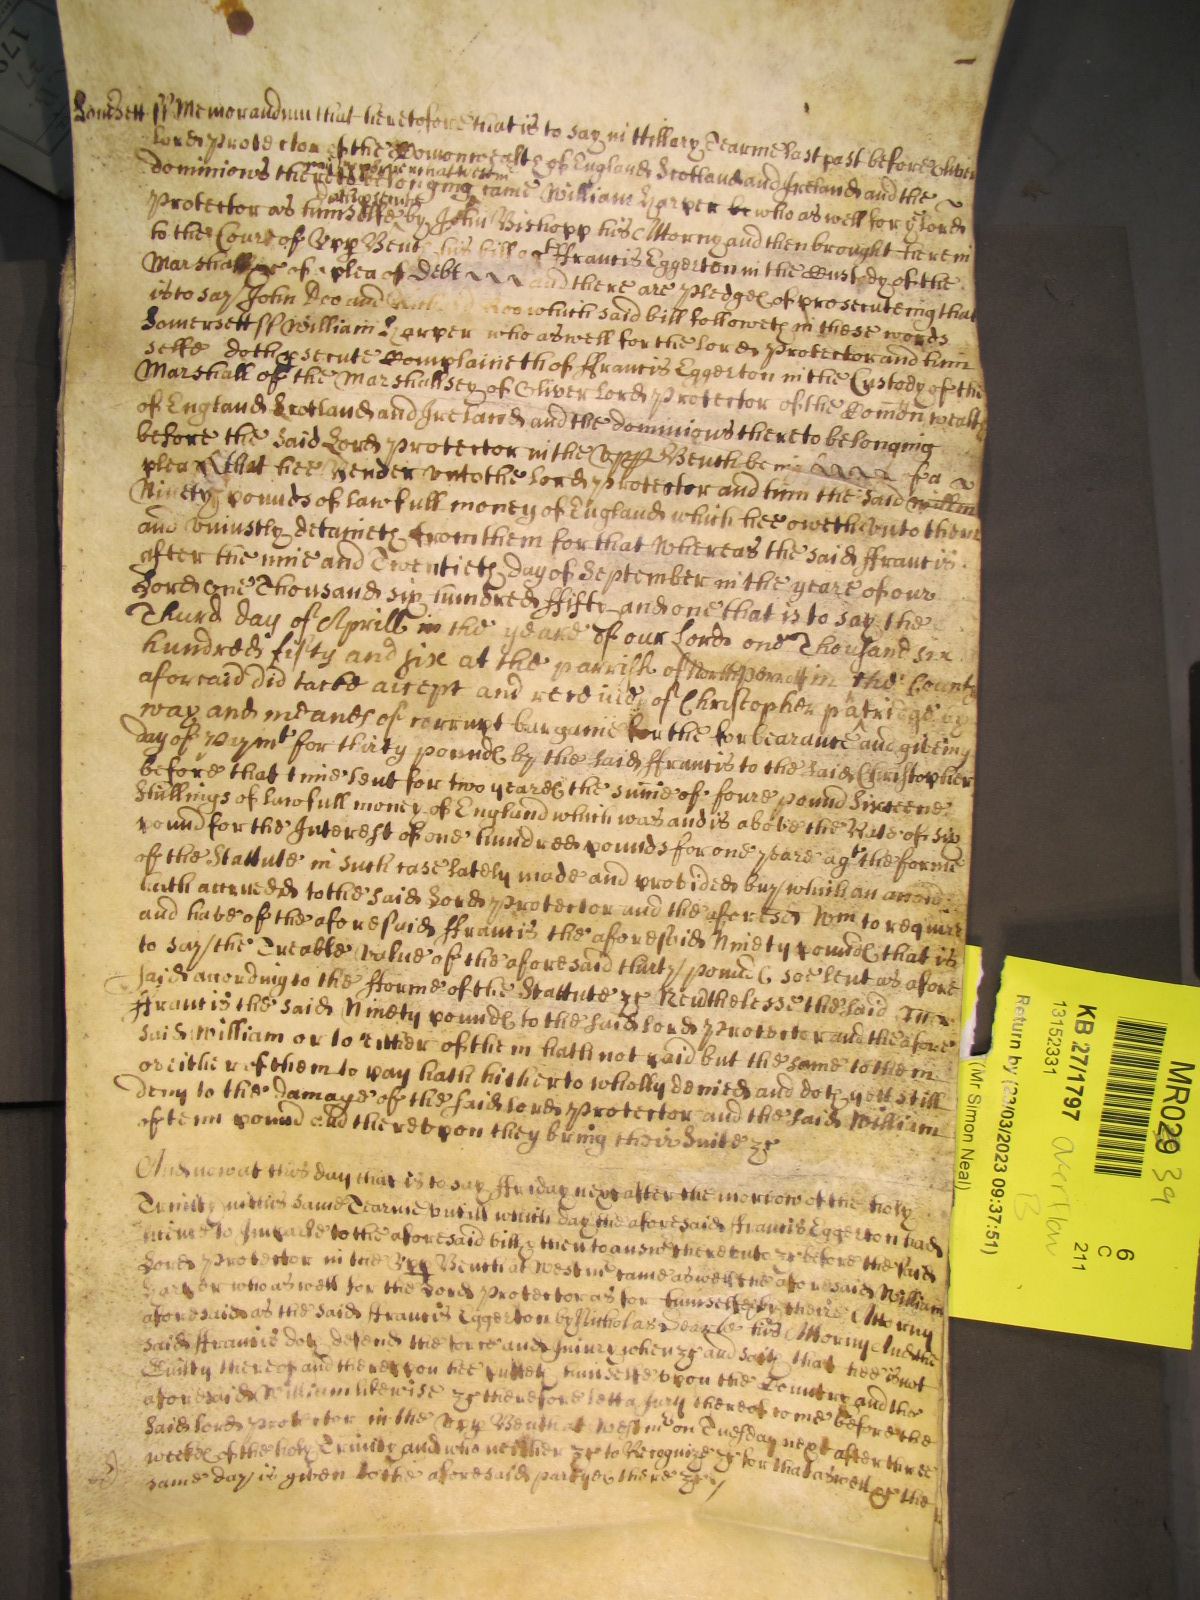 Somersett ss Memorandum that heretofore that is to say in Hillary Tearme last past before Oliver
Lord Protector of the Comonwealth of England Scotland and Ireland and the
dominions thereto belonging came William Harper who as well for ye Lord
Protector as himselfe by John Bishopp his Attorny and then brought here in
to the Court of Upp Bench his bill agt ffrancis Eggerton in the Custody of the
Marshall &c of a plea of Debt and there are pledges of prosecuteing that
is to say John Doo and Richard Roo which said bill followeth in these words
Somersett ss William Harper who as well for the Lord Protector and him
selfe doth psecute Complaineth of ffrancis Eggerton in the Custody of the
Marshall of the Marshallsey of Oliver Lord Protector of the Comon wealth
of England Scotland and Ireland and the dominions thereto belonging
before the said Lord Protector in the Upp Bench being of a
plea that hee Render unto the Lord Protector and him the said William
Ninety pounds of lawfull money of England which hee oweth unto them
and uniustly detaineth from them for that Whereas the said ffrancis
after the nine and Twentieth day of September in the yeare of our
Lord one Thousand six hundred ffifty and one that is to say the
Third day of Aprill in the yeare of our Lord one Thousand six
hundred fifty and six at the parrish of Northperrott in the County
aforesaid did take accept and receive of Christopher Patridge by
way and meanes of corrupt bargaine for the forbearance and giveing
day of paymt for thirty pounds by the said ffrancis to the said Christopher
before that time lent for two yeares the sume of foure pound Sixteene
Shillings of lawfull money of England which was and is above the Rate of six
pound for the Interest of one hundred pounds for one yeare agt the forme
of the Stattute in such case lately made and provided by which an accon
hath accrued to the said Lord Protector and the aforesd Wm to require
and have of the aforesaid ffrancis the aforesaid Ninety pounds that is
to say the Treable value of the aforesaid thirty pounds soe lent as afore
said according to the fforme of the Stattute &c Neverthelesse the said
ffrancis the said Ninety pounds to the said Lord Protector and the afore
said William or to either of them hath not paid but the same to them
or either of them to pay hath hitherto wholly denied and doth yett still
deny to the damage of the said Lord Protector and the said William
of tenn pound and thereupon they bring their Suite &c
And now at this day that is to say ffriday next after the morrow of the holy
Trinity in this same Tearme untill which day the aforesaid ffrancis Eggerton had
licence to Imparle to the aforesaid bill & then to answere thereunto &c before the said
Lord Protector in the Upp Bench at Westmr came as well the aforesaid William
Harper who as well for the Lord Protector as for himselfe by theire Attorny
aforesaid as the said ffrancis Eggerton by Nicholas his Attorny And the
said ffrancis doth defend the force and Iniury when &c and saith that hee is not
Guilty thereof and thereupon hee putteth himselfe upon the Country and the
aforesaid William likewise &c therefore lett a Jury thereof come before the
said Lord Protector in the Upp Bench at Westmr on Tuesday next after three
weekes of the holy Trinity and who neither &c to Recognize &c for that as well &c the
same day is given to the aforesaid partyes there &c
KB 27/1797
13152331
Return by (23/03/2023 09:37:51)
(Mr Simon Neal)
MR029
39
6
C
211
overflow
B